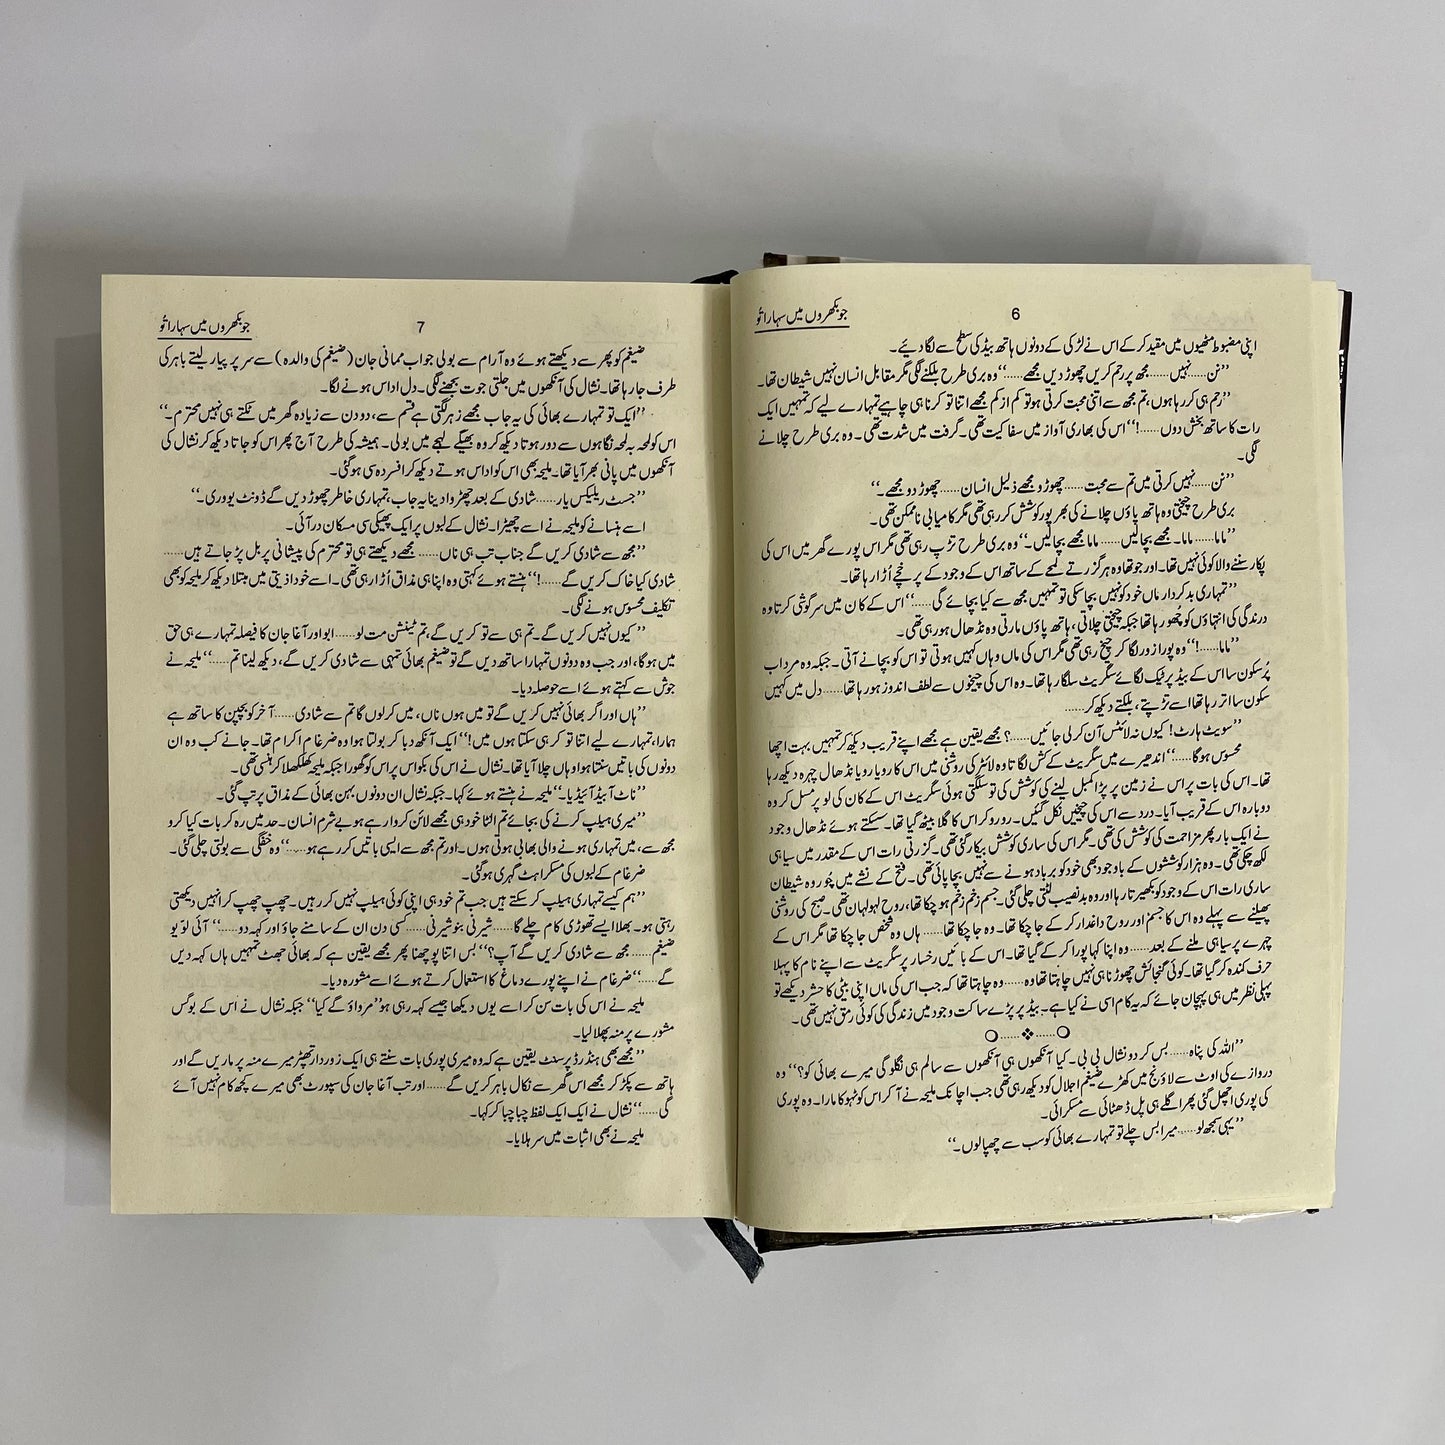 جو بکھروں میں سہارا تُو
6
اپنی مضبوط مٹھیوں میں مقید کر کے اس نے لڑکی کے دونوں ہاتھ بیڈ کی سطح سے لگا دیئے۔
”نن……نہیں……مجھ پر رحم کریں چھوڑ دیں مجھے……“ وہ بری طرح بلکنے لگی مگر مقابل انسان نہیں شیطان تھا۔
”رحم ہی کر رہا ہوں، تم مجھ سے اتنی محبت کرتی ہو تو کم از کم مجھے اتنا تو کرنا ہی چاہیے تمہارے لیے کہ تمہیں ایک
رات کا ساتھ بخش دوں……!“ اس کی بھاری آواز میں سفاکیت تھی۔ گرفت میں شدت تھی۔ وہ بری طرح چلانے
لگی۔
”نن……نہیں کرتی میں تم سے محبت……چھوڑو مجھے ذلیل انسان……چھوڑ دو مجھے۔“
بری طرح چیختی وہ ہاتھ پاؤں چلانے کی بھرپور کوشش کر رہی تھی مگر کامیابی ناممکن تھی۔
”ماما……ماما۔ مجھے بچالیں……ماما مجھے بچالیں۔“ وہ بری طرح تڑپ رہی تھی مگر اس پورے گھر میں اس کی
پکار سننے والا کوئی نہیں تھا۔ اور جو تھا وہ ہر گزرتے لمحے کے ساتھ اس کے وجود کے پرخچے اُڑا رہا تھا۔
”تمہاری بدکردار ماں خود کو نہیں بچا سکی تو تمہیں مجھ سے کیا بچائے گی……“ اس کے کان میں سرگوشی کرتا وہ
درندگی کی انتہاؤں کو چُھو رہا تھا جبکہ چیختی چلاتی، ہاتھ پاؤں مارتی وہ نڈھال ہو رہی تھی۔
”ماما……!“ وہ پورا زور لگا کر چیخ رہی تھی مگر اس کی ماں وہاں کہیں ہوتی تو اس کو بچانے آتی۔ جبکہ وہ مرد اب
پُرسکون سا اس کے بیڈ پر ٹیک لگائے سگریٹ سلگا رہا تھا۔ وہ اس کی چیخوں سے لطف اندوز ہو رہا تھا……دل میں کہیں
سکون سا اتر رہا تھا اسے تڑپتے، بلکتے دیکھ کر……
”سویٹ ہارٹ! کیوں نہ لائٹس آن کر لی جائیں……؟ مجھے یقین ہے مجھے اپنے قریب دیکھ کر تمہیں بہت اچھا
محسوس ہوگا……“ اندھیرے میں سگریٹ کے کش لگاتا وہ لائٹر کی روشنی میں اس کا رویا رویا نڈھال چہرہ دیکھ رہا
تھا۔ اس کی بات پر اس نے زمین پر پڑا کمبل لینے کی کوشش کی تو سلگتی ہوئی سگریٹ اس کے کان کی لو پر مسل کر وہ
دوبارہ اس کے قریب آیا۔ درد سے اس کی چیخیں نکل گئیں۔ رو رو کر اس کا گلا بیٹھ گیا تھا۔ سسکتے ہوئے نڈھال وجود
نے ایک بار پھر مزاحمت کی کوشش کی تھی۔ مگر اس کی ساری کوشش بیکار گئی تھی۔ گزرتی رات اس کے مقدر میں سیاہی
لکھ چکی تھی۔ وہ ہزار کوششوں کے باوجود بھی خود کو برباد ہونے سے نہیں بچا پائی تھی۔ فتح کے نشے میں چُور وہ شیطان
ساری رات اس کے وجود کو بکھیرتا رہا اور وہ بدنصیب لٹتی چلی گئی۔ جسم زخم زخم ہو چکا تھا، روح لہولہان تھی۔ صبح کی روشنی
پھیلنے سے پہلے وہ اس کا جسم اور روح داغدار کر کے جا چکا تھا۔ وہ جا چکا تھا……ہاں وہ شخص جا چکا تھا مگر اس کے
چہرے پر سیاہی ملنے کے بعد……وہ اپنا کہا پورا کر کے گیا تھا۔ اس کے بائیں رخسار پر سگریٹ سے اپنے نام کا پہلا
حرف کندہ کر گیا تھا۔ کوئی گنجائش چھوڑنا ہی نہیں چاہتا تھا وہ……وہ چاہتا تھا کہ جب اس کی ماں اپنی بیٹی کا حشر دیکھے تو
پہلی نظر میں ہی پہچان جائے کہ یہ کام اسی نے کیا ہے۔ بیڈ پر پڑے ساکت وجود میں زندگی کی کوئی رمق نہیں تھی۔
○……❖……○
”اللہ کی پناہ……بس کر دو نشال بی بی۔ کیا آنکھوں ہی آنکھوں سے سالم ہی نگلو گی میرے بھائی کو؟“ وہ
دروازے کی اوٹ سے لاؤنج میں کھڑے ضیغم اجلال کو دیکھ رہی تھی جب اچانک ملیحہ نے آ کر اس کو ٹہوکا مارا۔ وہ پوری
کی پوری اچھل گئی پھر اگلے ہی پل ڈھٹائی سے مسکرائی۔
”یہی سمجھ لو……میرا بس چلے تو تمہارے بھائی کو سب سے چھپا لوں۔“
جو بکھروں میں سہارا تُو
7
ضیغم کو پھر سے دیکھتے ہوئے وہ آرام سے بولی جو اب ممانی جان (ضیغم کی والدہ) سے سر پر پیار لیتے باہر کی
طرف جا رہا تھا۔ نشال کی آنکھوں میں جلتی جوت بجھنے لگی۔ دل اداس ہونے لگا۔
”ایک تو تمہارے بھائی کی یہ جاب مجھے زہر لگتی ہے قسم سے، دو دن سے زیادہ گھر میں ٹکتے ہی نہیں محترم۔“
اس کو لمحہ بہ لمحہ نگاہوں سے دور ہوتا دیکھ کر وہ بھیگے لہجے میں بولی۔ ہمیشہ کی طرح آج پھر اس کو جاتا دیکھ کر نشال کی
آنکھوں میں پانی بھر آیا تھا۔ ملیحہ بھی اس کو اداس ہوتے دیکھ کر افسردہ سی ہو گئی۔
”جسٹ ریلیکس یار……شادی کے بعد چھڑوا دینا یہ جاب، تمہاری خاطر چھوڑ دیں گے ڈونٹ یو وری۔“
اسے ہنسانے کو ملیحہ نے اسے چھیڑا۔ نشال کے لبوں پر ایک پھیکی سی مسکان در آئی۔
”مجھ سے شادی کریں گے جناب تب ہی ناں……مجھے دیکھتے ہی تو محترم کی پیشانی پر بل پڑ جاتے ہیں……
شادی کیا خاک کریں گے……!“ ہنستے ہوئے کہتی وہ اپنا ہی مذاق اُڑا رہی تھی۔ اسے خود اذیتی میں مبتلا دیکھ کر ملیحہ کو بھی
تکلیف محسوس ہونے لگی۔
”کیوں نہیں کریں گے۔ تم ہی سے تو کریں گے، تم ٹینشن مت لو……ابو اور آغا جان کا فیصلہ تمہارے ہی حق
میں ہوگا، اور جب وہ دونوں تمہارا ساتھ دیں گے تو ضیغم بھائی تمہی سے شادی کریں گے، دیکھ لینا تم……“ ملیحہ نے
جوش سے کہتے ہوئے اسے حوصلہ دیا۔
”ہاں اور اگر بھائی نہیں کریں گے تو میں ہوں ناں، میں کر لوں گا تم سے شادی……آخر کو بچپن کا ساتھ ہے
ہمارا، تمہارے لیے اتنا تو کر ہی سکتا ہوں میں!“ ایک آنکھ دبا کر بولتا ہوا وہ ضرغام اکرام تھا۔ جانے کب وہ ان
دونوں کی باتیں سنتا ہوا وہاں چلا آیا تھا۔ نشال نے اس کی بکواس پر اس کو گھورا جبکہ ملیحہ کھلکھلا کر ہنسی تھی۔
”ناٹ آ بیڈ آئیڈیا۔“ ملیحہ نے ہنستے ہوئے کہا۔ جبکہ نشال ان دونوں بہن بھائی کے مذاق پر تپ گئی۔
”میری ہیلپ کرنے کی بجائے تم الٹا خود ہی مجھے لائن کروا رہے ہو بے شرم انسان۔ حد میں رہ کر بات کیا کرو
مجھ سے، میں تمہاری ہونے والی بھابی ہوتی ہوں۔ اور تم مجھ سے ایسی باتیں کر رہے ہو……“ وہ خفگی سے بولتی چلی گئی۔
ضرغام کے لبوں کی مسکراہٹ گہری ہو گئی۔
”ہم کیسے تمہاری ہیلپ کر سکتے ہیں جب تم خود ہی اپنی کوئی ہیلپ نہیں کر رہیں۔ چھپ چھپ کر انہیں دیکھتی
رہتی ہو۔ بھلا ایسے تھوڑی کام چلے گا……شیرنی بنو شیرنی……کسی دن ان کے سامنے جاؤ اور کہہ دو……”آئی لوّ یو
ضیغم……مجھ سے شادی کریں گے آپ؟“ بس اتنا پوچھنا پھر مجھے یقین ہے کہ بھائی جھٹ تمہیں ہاں کہہ دیں
گے……“ ضرغام نے اپنے پورے دماغ کا استعمال کرتے ہوئے اسے مشورہ دیا۔
ملیحہ نے اس کی بات سن کر اسے یوں دیکھا جیسے کہہ رہی ہو ”مرواؤ گے کیا“ جبکہ نشال نے اس کے بوگس
مشورے پر منہ پھلا لیا۔
”مجھے بھی ہنڈرڈ پرسنٹ یقین ہے کہ وہ میری پوری بات سنتے ہی ایک زوردار تھپڑ میرے منہ پر ماریں گے اور
ہاتھ سے پکڑ کر مجھے اس گھر سے نکال باہر کریں گے……اور تب آغا جان کی سپورٹ بھی میرے کچھ کام نہیں آئے
گی……“ نشال نے ایک ایک لفظ چبا چبا کر کہا۔
ملیحہ نے بھی اثبات میں سر ہلایا۔